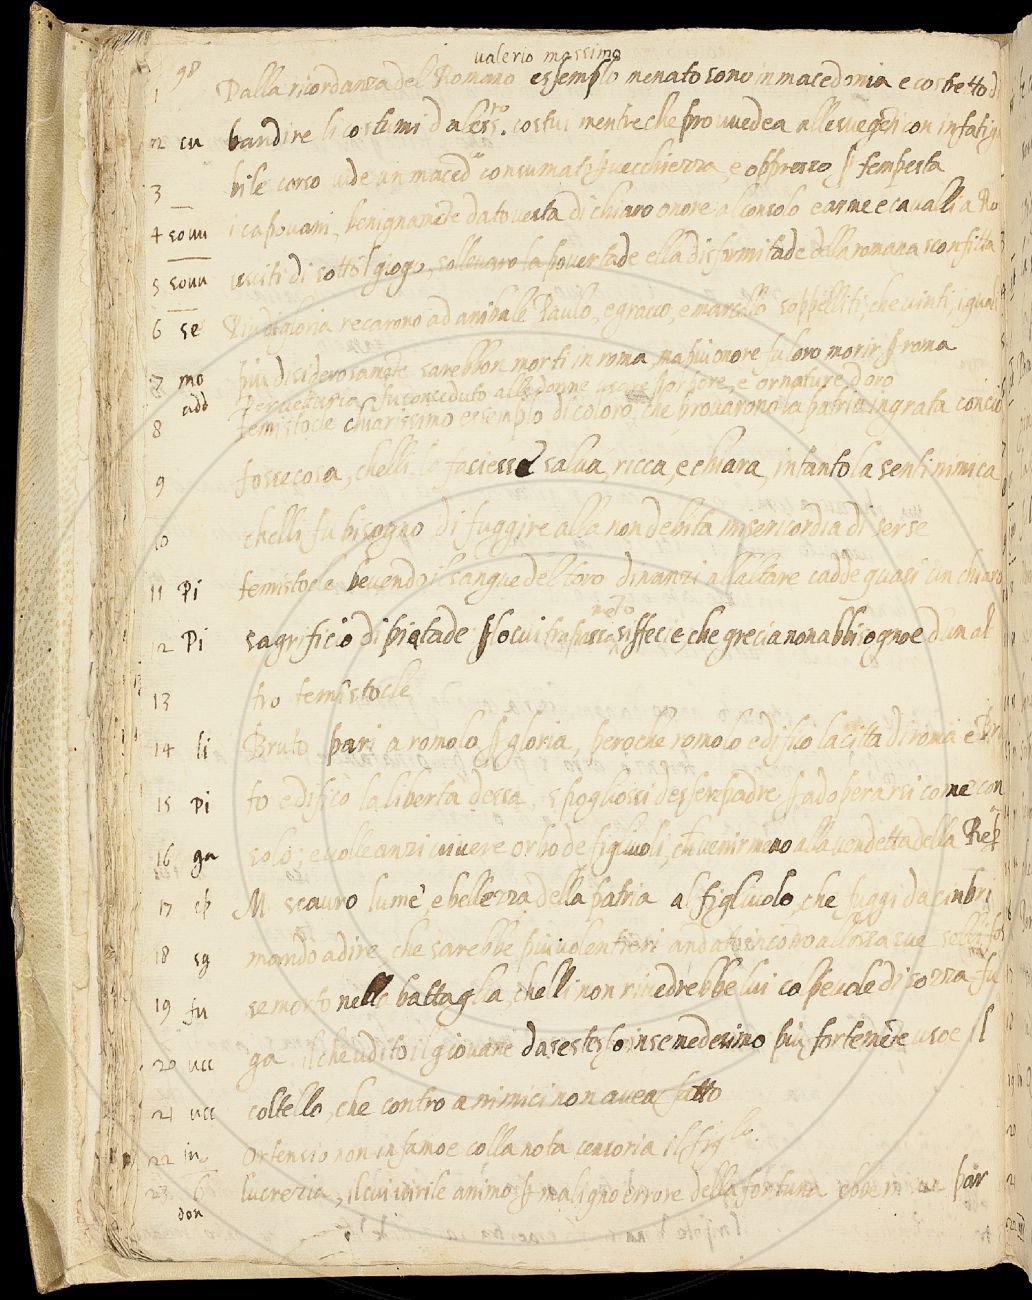 valerio massimo
98
1 Dalla ricordanza del Romano essemplo menato sono in macedonia e costretto d
2 cu bandire li costumi d'aless.ro costui mentre che provvedea allesue gēti con infatiga
3 bile corso vide un maced consumato ꝑ vecchiezza e oppresso ꝑ tempesta
4 sovu i capovani, benignamēte dato vesta di chiaro onore al consolo e arme e cavalli a Ro
5 sovu usciti di sotto'l giogo, sollevaro la povertade e lla disformitade della romana sconfitta
6 se Piu di gloria recarono ad anibale Paulo, e gracco, e marcello soppelliti, che vinti, i quali
7 mo piu disiderosamēte sarebbon morti in roma, ma piu onore fu loro morir ꝑ roma
add Per veturia fu conceduto alle donne usare porpore, e ornature d'oro
8 temistocle chiarissimo essemplo di coloro, che provarono la patria ingrata concio
9 fosse cosa, chelli la faciesse salva, ricca, e chiara, in tanto la senti nimica
10 chelli fu bisogno di fuggire alla non debita misericordia di serse
11 Pi temistocle bevendo il sangue del toro dinanzi all altare cadde quasi un chiaro
12 Pi sagrificio di pietade ꝑ lo cui trapassamēto si fece, che grecia non abbisognoe d'un al
13 tro temistocle
14 li Bruto pari a romolo ꝑ gloria, peroche romolo edifico la citta di roma e Bru
15 pi to edifico la liberta d'essa, spogliossi d'esser padre ꝑ adoperarsi come con
16 ga solo, e volle anzi vivere orbo de figliuoli, ch venir meno alla vendetta della Rep
17 ep M scauro lume, e bellezza della patria al figliuolo, che fuggi da cinbri
18 sg mando a dire che sarebbe piu volentieri andato incontro all ossa sue se fos
19 fu se morto nella battaglia, chelli non rivedrebbe lui colpevole di sozza fu
20 ucc ga il che udito il giovane da se stesso in se medesimo piu fortemēte usoe il
21 ucc coltello, che contro a nimici non avea fatto
22 in Ortensio non infamoe colla nota censoria il figlo.
23 b lucrezia, il cui virile animo ꝑ maligno errore della fortuna ebbe in sue par
don